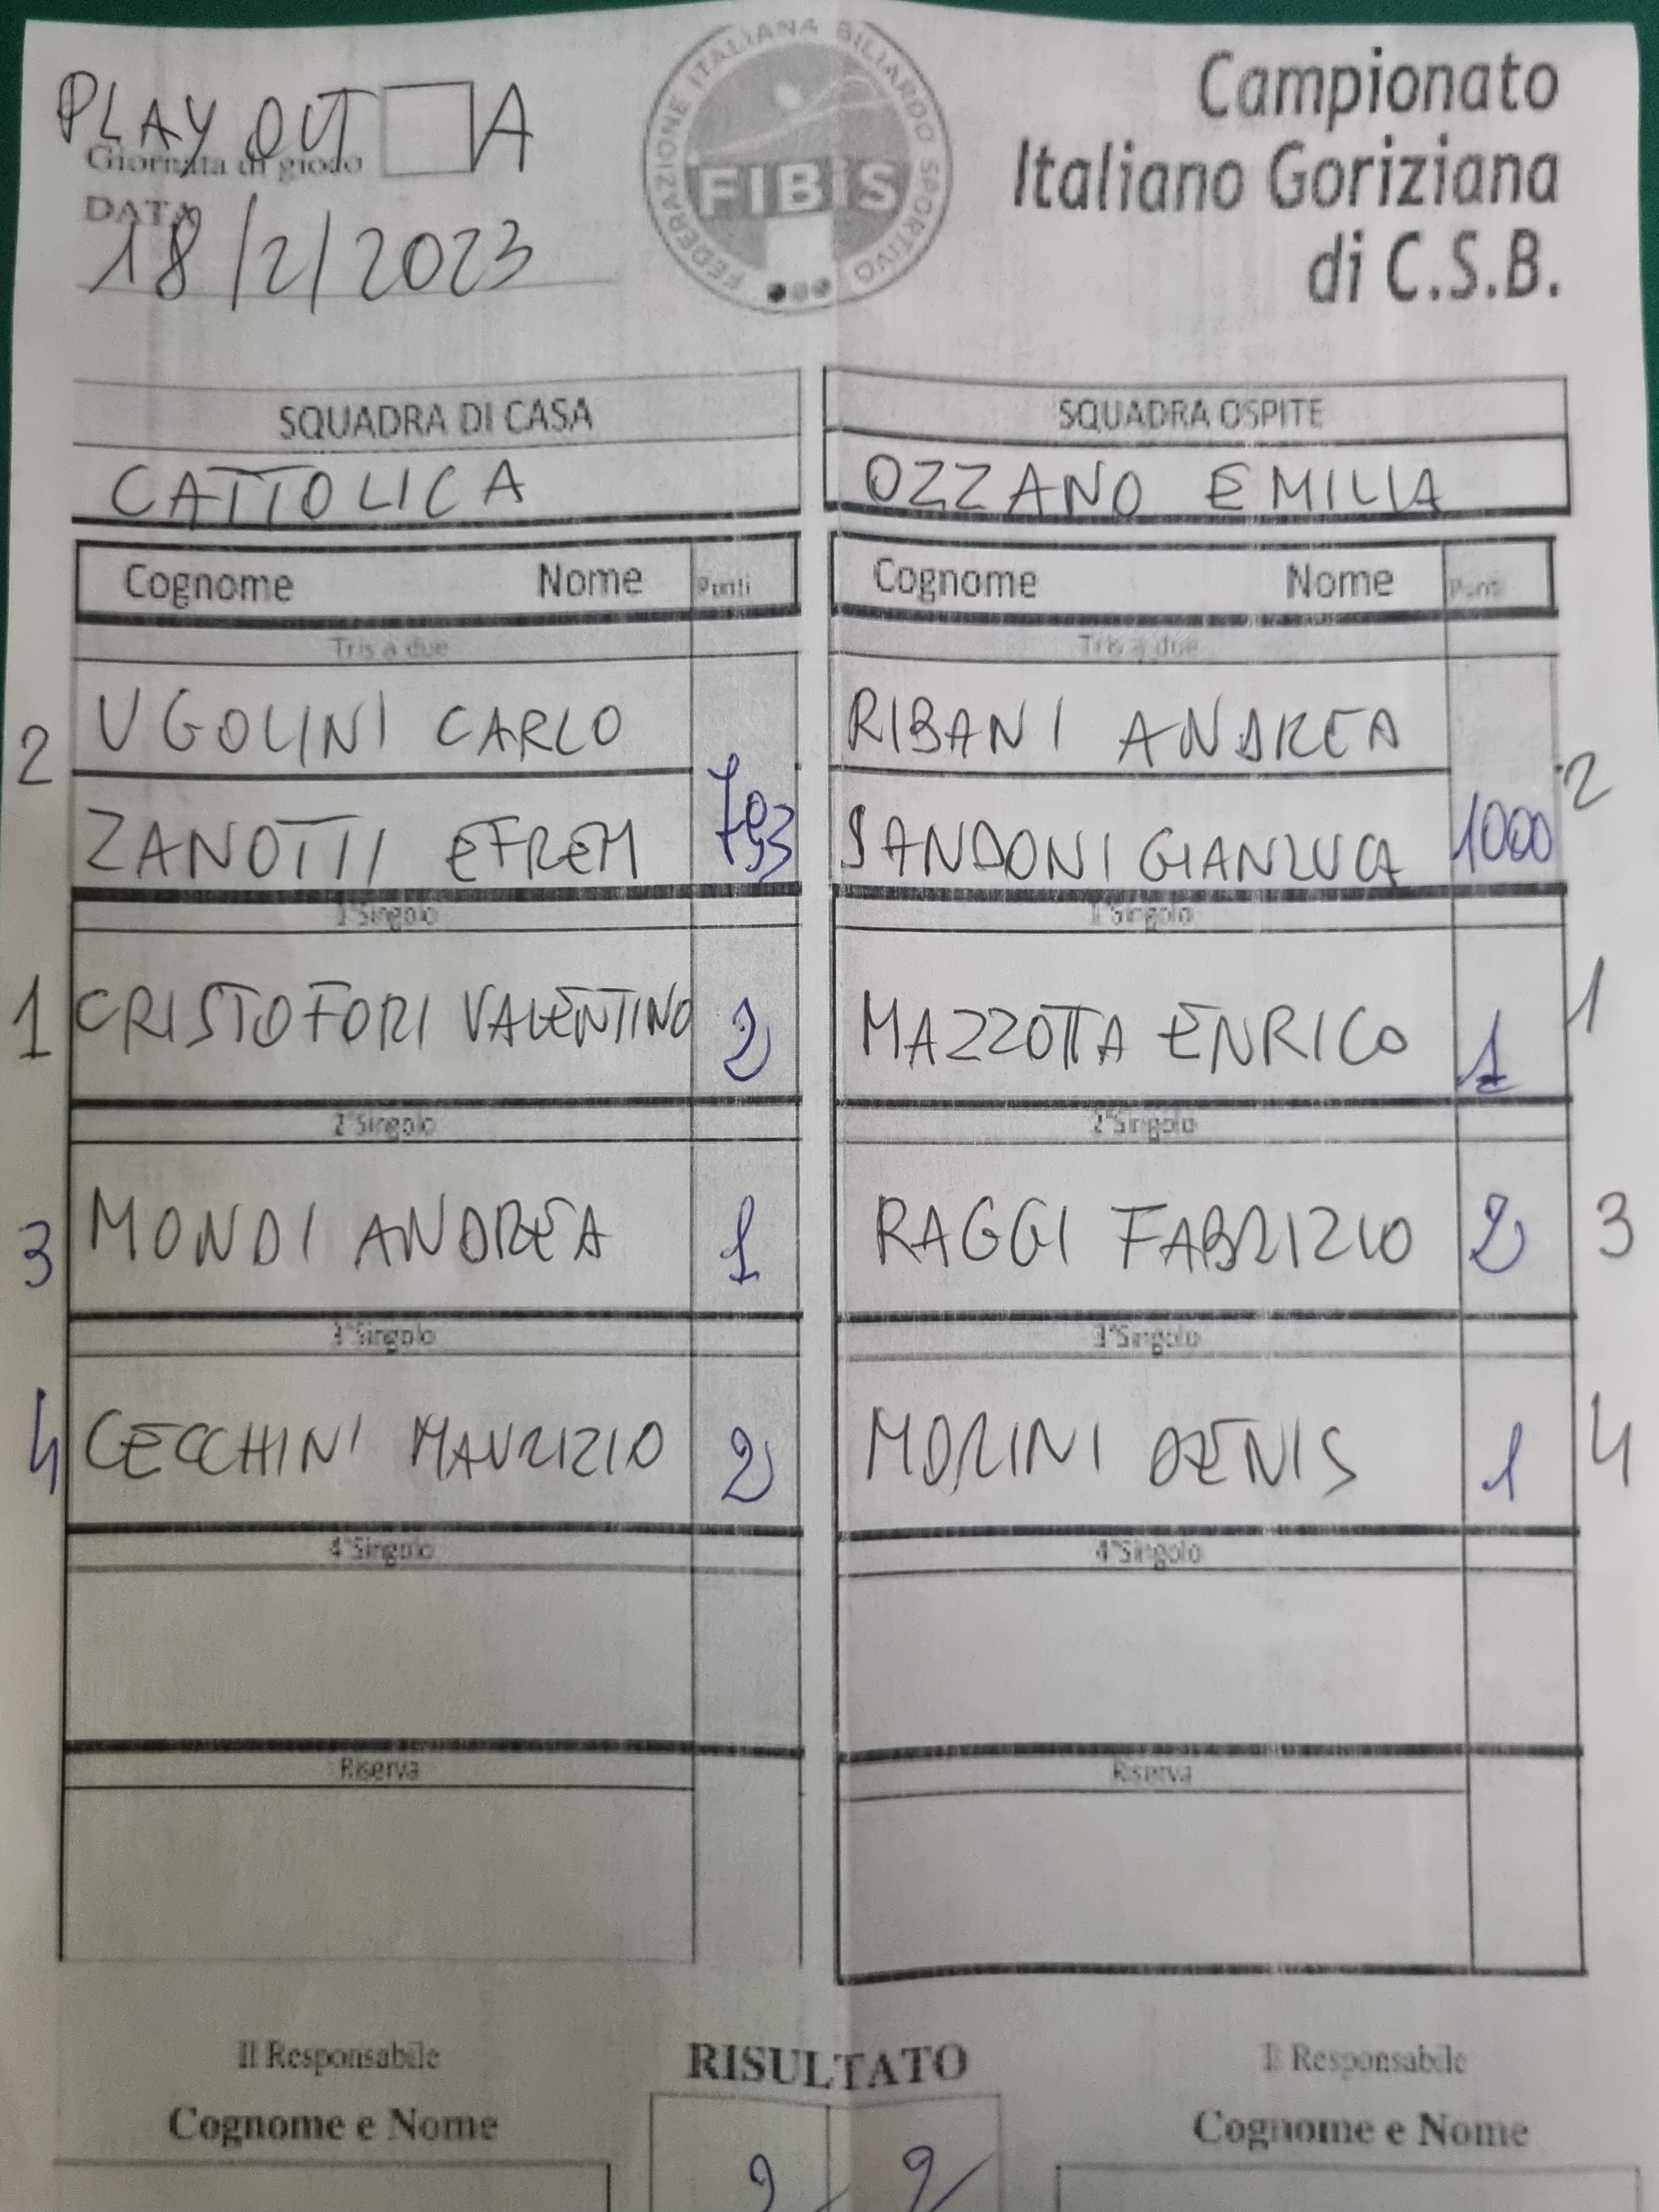 PLAY OUT A
Giornata di gioco
DATA
18/2/2023
FEDERAZIONE ITALIANA BILIARDO SPORTIVO
FIBiS
Campionato
Italiano Goriziana
di C.S.B.
SQUADRA DI CASA
CATTOLICA
Cognome Nome Punti
Tris a due
2 UGOLINI CARLO
ZANOTTI EFREM 793
1°Singolo
1 CRISTOFORI VALENTINO 2
2°Singolo
3 MONDI ANDREA 1
3°Singolo
4 CECCHINI MAURIZIO 2
4°Singolo
Riserva
SQUADRA OSPITE
OZZANO EMILIA
Cognome Nome Punti
Tris a due
RIBANI ANDREA 2
SANDONI GIANLUCA 1000
1°Singolo
MAZZOTTA ENRICO 1 1
2°Singolo
RAGGI FABRIZIO 2 3
3°Singolo
MORINI DENIS 1 4
4°Singolo
Riserva
Il Responsabile
Cognome e Nome
RISULTATO
2 2
Il Responsabile
Cognome e Nome